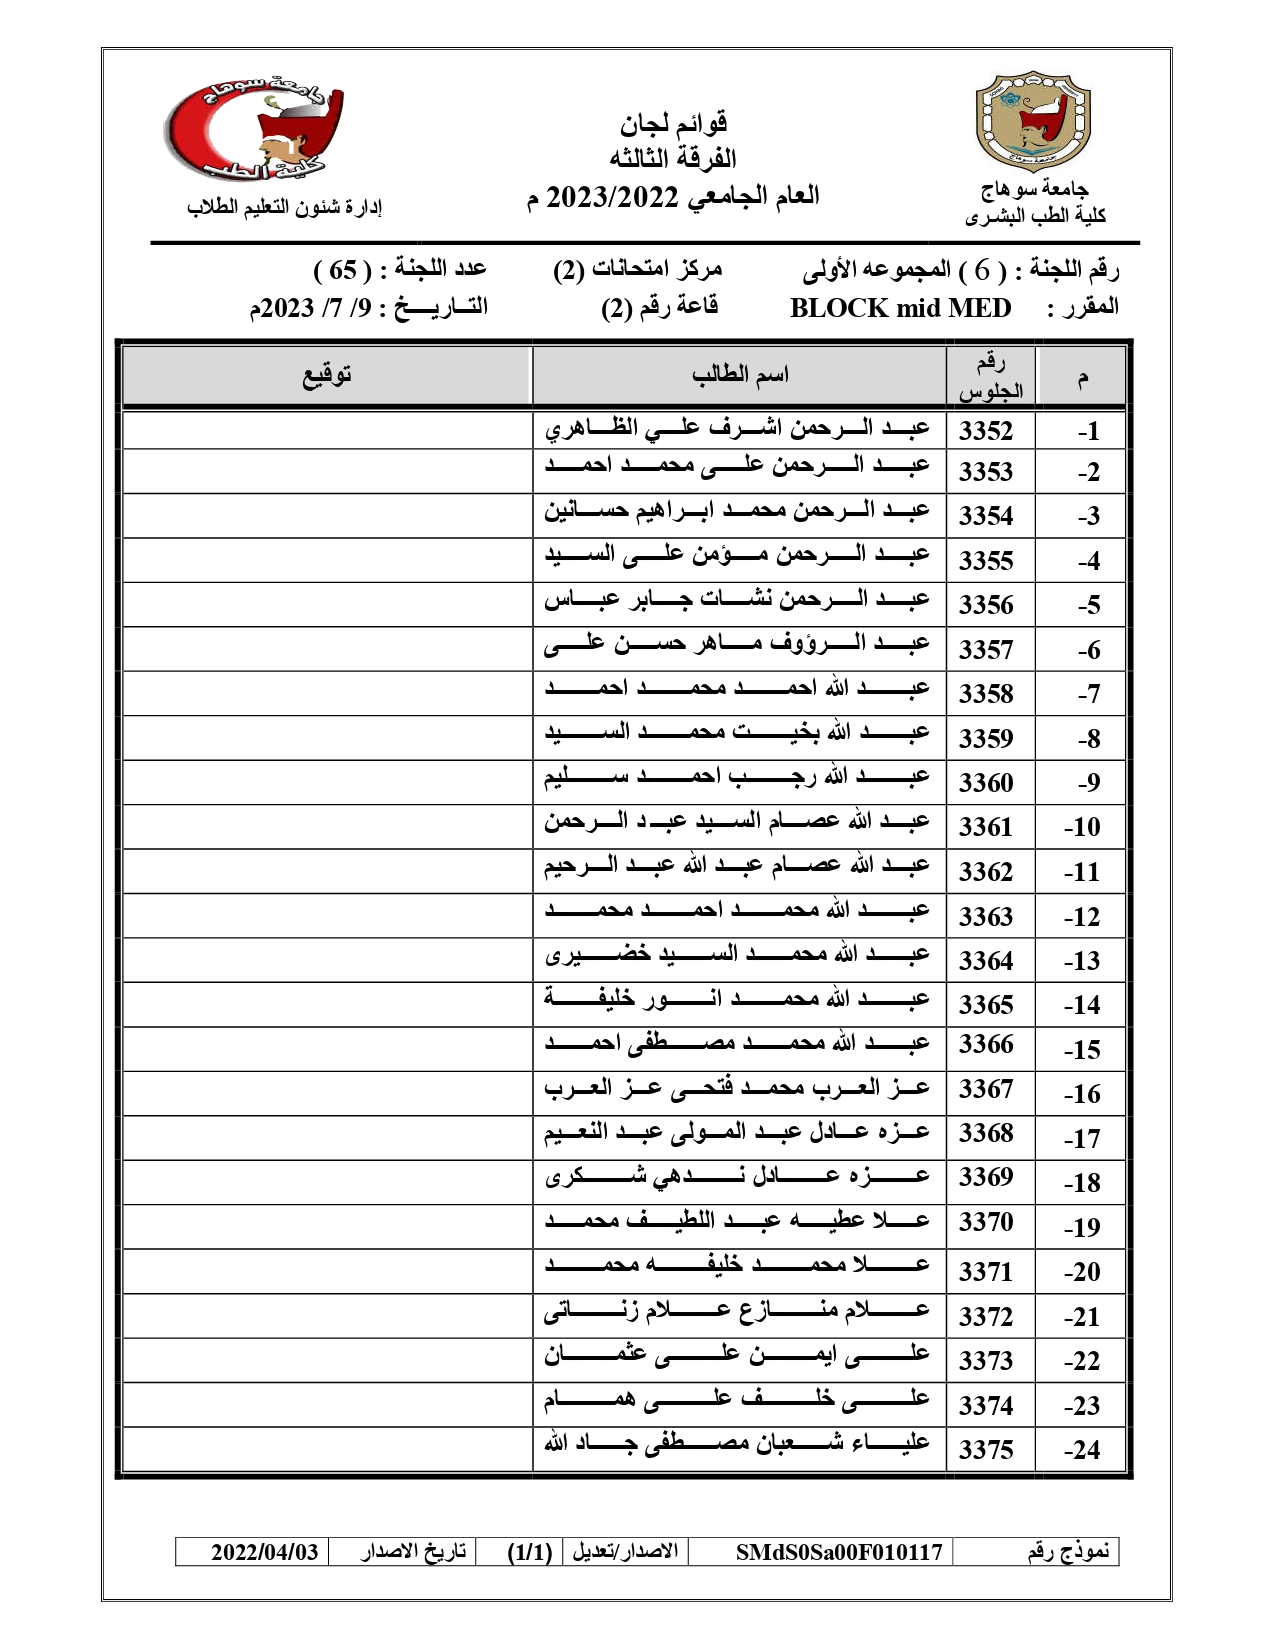 جامعة سوهاج
كلية الطب البشرى
قوائم لجان
الفرقة الثالثه
العام الجامعي 2023/2022 م
جامعة سوهاج
كلية الطب
إدارة شئون التعليم الطلاب
رقم اللجنة : ( 6 ) المجموعه الأولى مركز امتحانات (2) عدد اللجنة : ( 65 )
المقرر : BLOCK mid MED قاعة رقم (2) التاريخ : 9/ 7/ 2023م
م رقم الجلوس اسم الطالب توقيع
1- 3352 عبد الرحمن اشرف علي الظاهري
2- 3353 عبد الرحمن على محمد احمد
3- 3354 عبد الرحمن محمد ابراهيم حسانين
4- 3355 عبد الرحمن مؤمن على السيد
5- 3356 عبد الرحمن نشات جابر عباس
6- 3357 عبد الرؤوف ماهر حسن على
7- 3358 عبد الله احمد محمد احمد
8- 3359 عبد الله بخيت محمد السيد
9- 3360 عبد الله رجب احمد سليم
10- 3361 عبد الله عصام السيد عبد الرحمن
11- 3362 عبد الله عصام عبد الله عبد الرحيم
12- 3363 عبد الله محمد احمد محمد
13- 3364 عبد الله محمد السيد خضيرى
14- 3365 عبد الله محمد انور خليفة
15- 3366 عبد الله محمد مصطفى احمد
16- 3367 عز العرب محمد فتحى عز العرب
17- 3368 عزه عادل عبد المولى عبد النعيم
18- 3369 عزه عادل ندهي شكرى
19- 3370 علا عطيه عبد اللطيف محمد
20- 3371 علا محمد خليفه محمد
21- 3372 علام منازع علام زناتى
22- 3373 على ايمن على عثمان
23- 3374 على خلف على همام
24- 3375 علياء شعبان مصطفى جاد الله
نموذج رقم SMdS0Sa00F010117 الاصدار/تعديل (1/1) تاريخ الاصدار 2022/04/03